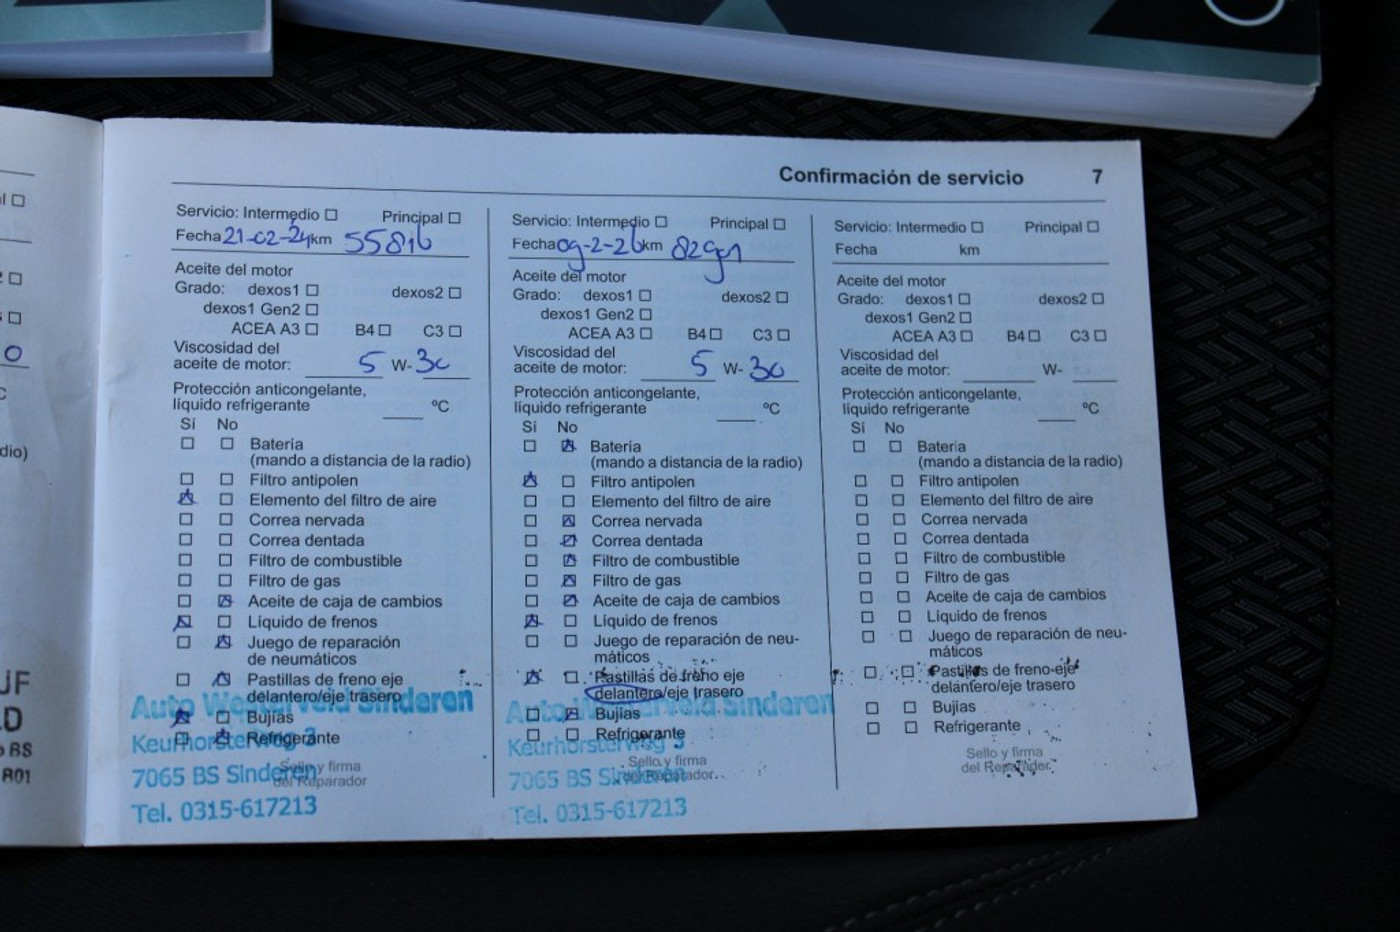 Confirmación de servicio 7
Servicio: Intermedio Principal
Fecha 21-02-24 km 55816
Aceite del motor
Grado: dexos1 dexos2
dexos1 Gen2
ACEA A3 B4 C3
Viscosidad del
aceite de motor: 5 W-30
Protección anticongelante,
líquido refrigerante ºC
Sí No
Batería
(mando a distancia de la radio)
Filtro antipolen
Elemento del filtro de aire
Correa nervada
Correa dentada
Filtro de combustible
Filtro de gas
Aceite de caja de cambios
Líquido de frenos
Juego de reparación
de neumáticos
Pastillas de freno eje
delantero/eje trasero
Bujías
Refrigerante
Sello y firma
del Reparador
Auto Westerveld Sinderen
Keurhorsterweg 3
7065 BS Sinderen
Tel. 0315-617213
Servicio: Intermedio Principal
Fecha 09-2-26 km
Aceite del motor
Grado: dexos1 dexos2
dexos1 Gen2
ACEA A3 B4 C3
Viscosidad del
aceite de motor: 5 W-30
Protección anticongelante,
líquido refrigerante ºC
Sí No
Batería
(mando a distancia de la radio)
Filtro antipolen
Elemento del filtro de aire
Correa nervada
Correa dentada
Filtro de combustible
Filtro de gas
Aceite de caja de cambios
Líquido de frenos
Juego de reparación de neu-
máticos
Pastillas de freno eje
delantero/eje trasero
Bujías
Refrigerante
Sello y firma
del Reparador
Auto Westerveld Sinderen
Keurhorsterweg 3
7065 BS Sinderen
Tel. 0315-617213
Servicio: Intermedio Principal
Fecha km
Aceite del motor
Grado: dexos1 dexos2
dexos1 Gen2
ACEA A3 B4 C3
Viscosidad del
aceite de motor: W-
Protección anticongelante,
líquido refrigerante ºC
Sí No
Batería
(mando a distancia de la radio)
Filtro antipolen
Elemento del filtro de aire
Correa nervada
Correa dentada
Filtro de combustible
Filtro de gas
Aceite de caja de cambios
Líquido de frenos
Juego de reparación de neu-
máticos
Pastillas de freno eje
delantero/eje trasero
Bujías
Refrigerante
Sello y firma
del Reparador